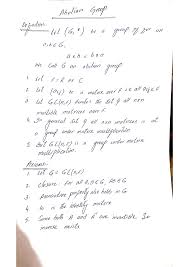 Abelian Group
Definition:
Let (G, *) is a group if
a, b ∈ G,
a * b = b * a
We call G an abelian group
1. Let F = R or C
2. Let
3. GL(n, F) denotes the set of all nxn
invertible matrices over F.
4. In general set of all nxn matrices is not a
group under matrix multiplication
5. GL(n, F) is a group under matrix
multiplication.
1. Let G = GL(n, F)
2. closure: For all A, B ∈ G, AB ∈ G
3. Associative property also holds in G
4. is the identity matrix
5. Since both A and are invertible. So
inverse exists